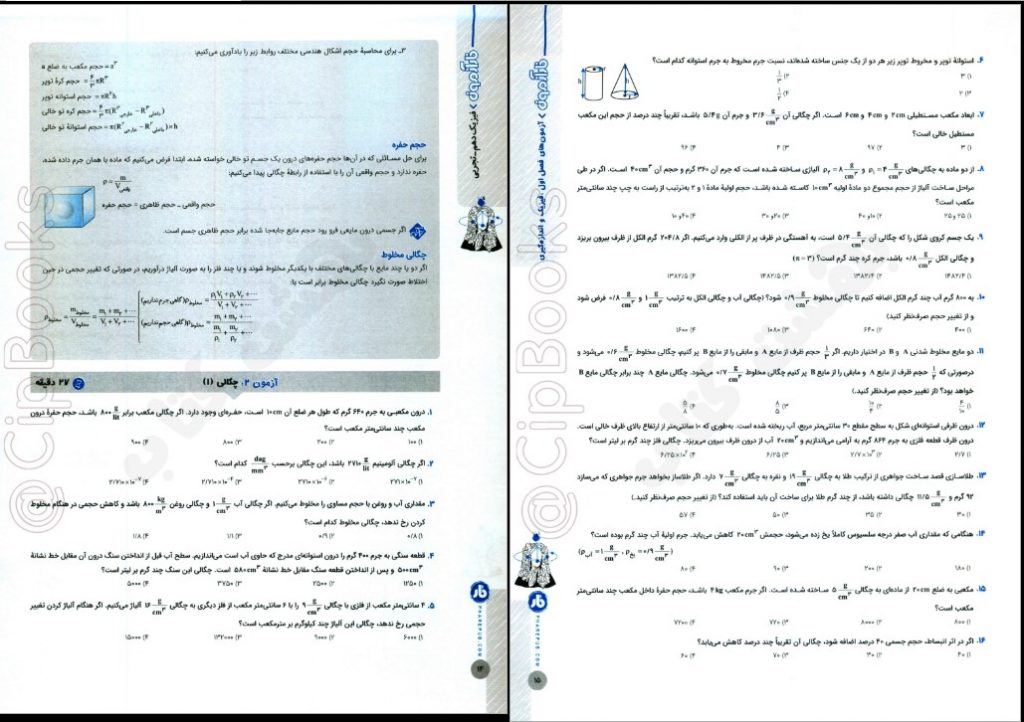 ۳ـ برای محاسبهٔ حجم اشکال هندسی مختلف روابط زیر را یادآوری می‌کنیم:
حجم مکعب به ضلع a = a³
حجم کرهٔ توپر = ۴/۳ πR³
حجم استوانه توپر = πR²h
حجم کره تو خالی = ۴/۳ π(R³خارجی − R³داخلی)
حجم استوانهٔ تو خالی = π(R²خارجی − R²داخلی)×h
حجم حفره
برای حل مسائلی که در آن‌ها حجم حفره‌های درون یک جسم تو خالی خواسته شده، ابتدا فرض می‌کنیم که ماده با همان جرم داده شده،
حفره ندارد و حجم واقعی آن را با استفاده از رابطهٔ چگالی پیدا می‌کنیم:
ρ = m/Vواقعی
حجم واقعی ـ حجم ظاهری = حجم حفره
اگر جسمی درون مایعی فرو رود حجم مایع جابه‌جا شده برابر حجم ظاهری جسم است.
چگالی مخلوط
اگر دو یا چند مایع با چگالی‌های مختلف با یکدیگر مخلوط شوند و یا چند فلز را به صورت آلیاژ درآوریم، در صورتی که تغییر حجمی در حین
اختلاط صورت نگیرد چگالی مخلوط برابر است با:
آزمون ۲: چگالی (۱)
۲۷ دقیقه
۱. درون مکعبی به جرم ۶۴۰ گرم که طول هر ضلع آن ۱۰cm است، حفره‌ای وجود دارد. اگر چگالی مکعب برابر ۸۰۰ g/lit باشد، حجم حفرهٔ درون
مکعب چند سانتی‌متر مکعب است؟
۱) ۱۰۰ ۲) ۲۰۰ ۳) ۸۰۰ ۴) ۹۰۰
۲. اگر چگالی آلومینیم ۲۷۱۰ g/lit باشد، این چگالی برحسب dag/mm³ کدام است؟
۳. مقداری آب و روغن با حجم مساوی را مخلوط می‌کنیم. اگر چگالی آب ۱ g/cm³ و چگالی روغن ۸۰۰ kg/m³ باشد و کاهش حجمی در هنگام مخلوط
کردن رخ ندهد، چگالی مخلوط کدام است؟
۱) ۰/۸ ۲) ۰/۹ ۳) ۱/۱ ۴) ۱/۸
۴. قطعه سنگی به جرم ۴۰۰ گرم را درون استوانه‌ای مدرج که حاوی آب است می‌اندازیم. سطح آب قبل از انداختن سنگ درون آن مقابل خط نشانهٔ
۵۰۰cm³ و پس از انداختن قطعه سنگ مقابل خط نشانهٔ ۵۸۰cm³ است. چگالی این سنگ چند گرم بر لیتر است؟
۱) ۱۲۵۰ ۲) ۲۵۰۰ ۳) ۳۷۵۰ ۴) ۵۰۰۰
۵. ۴ سانتی‌متر مکعب از فلزی با چگالی ۹ g/cm³ را با ۶ سانتی‌متر مکعب از فلز دیگری به چگالی ۱۶ g/cm³ آلیاژ می‌کنیم. اگر هنگام آلیاژ کردن تغییر
حجمی رخ ندهد، چگالی این آلیاژ چند کیلوگرم بر مترمکعب است؟
۱) ۶۰۰۰ ۲) ۹۰۰۰ ۳) ۱۳۲۰۰۰ ۴) ۱۵۰۰۰
فارآزمون > فیزیک دهم ـ تجربی
فار
PHAREPUB.COM
۱۴
۶. استوانهٔ توپر و مخروط توپر زیر هر دو از یک جنس ساخته شده‌اند، نسبت جرم مخروط به جرم استوانه کدام است؟
۱) ۳ ۳) ۱/۳
۲) ۲ ۴) ۱/۲
۷. ابعاد مکعب مستطیلی ۲cm و ۴cm و ۶cm است. اگر چگالی آن ۳/۶ g/cm³ و جرم آن ۵/۴g باشد، تقریباً چند درصد از حجم این مکعب
مستطیل خالی است؟
۱) ۳ ۲) ۹۷ ۳) ۴ ۴) ۹۶
۸. از دو ماده به چگالی‌های ρ₁ = ۴ g/cm³ و ρ₂ = ۸ g/cm³ آلیاژی ساخته شده است که جرم آن ۳۶۰ گرم و حجم آن ۴۰cm³ است. اگر در طی
مراحل ساخت آلیاژ از حجم مجموع دو مادهٔ اولیه ۱۰cm³ کاسته شده باشد، حجم اولیهٔ مادهٔ ۱ و ۲ به‌ترتیب از راست به چپ چند سانتی‌متر
مکعب است؟
۱) ۲۵ و ۲۵ ۲) ۱۰ و ۴۰ ۳) ۲۰ و ۳۰ ۴) ۴۰ و ۱۰
۹. یک جسم کروی شکل را که چگالی آن ۵/۴ g/cm³ است، به آهستگی در ظرف پر از الکلی وارد می‌کنیم. اگر ۲۰۴/۸ گرم الکل از ظرف بیرون بریزد
و چگالی الکل ۰/۸ g/cm³ باشد، جرم کره چند گرم است؟ (π = ۳)
۱) ۱۴۸۲/۴ ۲) ۱۳۸۲/۴ ۳) ۱۴۸۲/۵ ۴) ۱۳۸۲/۵
۱۰. به ۸۰۰ گرم آب چند گرم الکل اضافه کنیم تا چگالی مخلوط ۰/۹ g/cm³ شود؟ (چگالی آب و چگالی الکل به ترتیب ۱ g/cm³ و ۰/۸ g/cm³ فرض شود
و از تغییر حجم صرف‌نظر کنید)
۱) ۴۰۰ ۲) ۶۴۰ ۳) ۱۰۸۰ ۴) ۱۶۰۰
۱۱. دو مایع مخلوط شدنی A و B در اختیار داریم. اگر ۱/۳ حجم ظرف از مایع A و مابقی را از مایع B پر کنیم، چگالی مخلوط ۰/۶ g/cm³ می‌شود و
خواهد بود؟ (از تغییر حجم صرف‌نظر کنید.)
۱۲. درون ظرفی استوانه‌ای شکل به سطح مقطع ۳۰ سانتی‌متر مربع، آب ریخته شده است. به‌طوری که ۱۰ سانتی‌متر از ارتفاع بالای ظرف خالی است.
درون ظرف قطعه فلزی به جرم ۸۶۴ گرم به آرامی می‌اندازیم و ۲۰cm³ آب از درون ظرف بیرون می‌ریزد. چگالی فلز چند گرم بر لیتر است؟
۱) ۲/۷ ۲) ۲/۷×۱۰³ ۳) ۶/۲۵ ۴) ۶/۲۵×۱۰³
۱۳. طلاسازی قصد ساخت جواهری از ترکیب طلا به چگالی ۱۹ g/cm³ و نقره به چگالی ۷ g/cm³ دارد. اگر طلاساز بخواهد جرم جواهری که می‌سازد
۹۲ گرم و ۱۱/۵ g/cm³ چگالی داشته باشد، از چند گرم طلا برای ساخت آن باید استفاده کند؟ (از تغییر حجم صرف‌نظر کنید.)
۱) ۳۰ ۲) ۳۵ ۳) ۵۰ ۴) ۵۷
۱۴. هنگامی که مقداری آب صفر درجه سلسیوس کاملاً یخ زده می‌شود، حجمش ۲۰cm³ کاهش می‌یابد. جرم اولیهٔ آب چند گرم بوده است؟
(ρآب = ۱ g/cm³ , ρیخ = ۰/۹ g/cm³)
۱) ۱۸۰ ۲) ۲۰۰ ۳) ۹۰ ۴) ۸۰
۱۵. مکعبی به ضلع ۲۰cm از ماده‌ای به چگالی ۵ g/cm³ ساخته شده است. اگر جرم مکعب ۴kg باشد، حجم حفرهٔ داخل مکعب چند سانتی‌متر
مکعب است؟
۱) ۸۰۰ ۲) ۸۰۰۰ ۳) ۷۲۰ ۴) ۷۲۰۰
۱۶. اگر در اثر انبساط، حجم جسمی ۴۰ درصد اضافه شود، چگالی آن تقریباً چند درصد کاهش می‌یابد؟
۱) ۴۰ ۲) ۳۰ ۳) ۷۰ ۴) ۶۰
فارآزمون > آزمون‌های فصل اول: فیزیک و اندازه‌گیری
فار
PHAREPUB.COM
۱۵
@CipBooks
@CipBooks